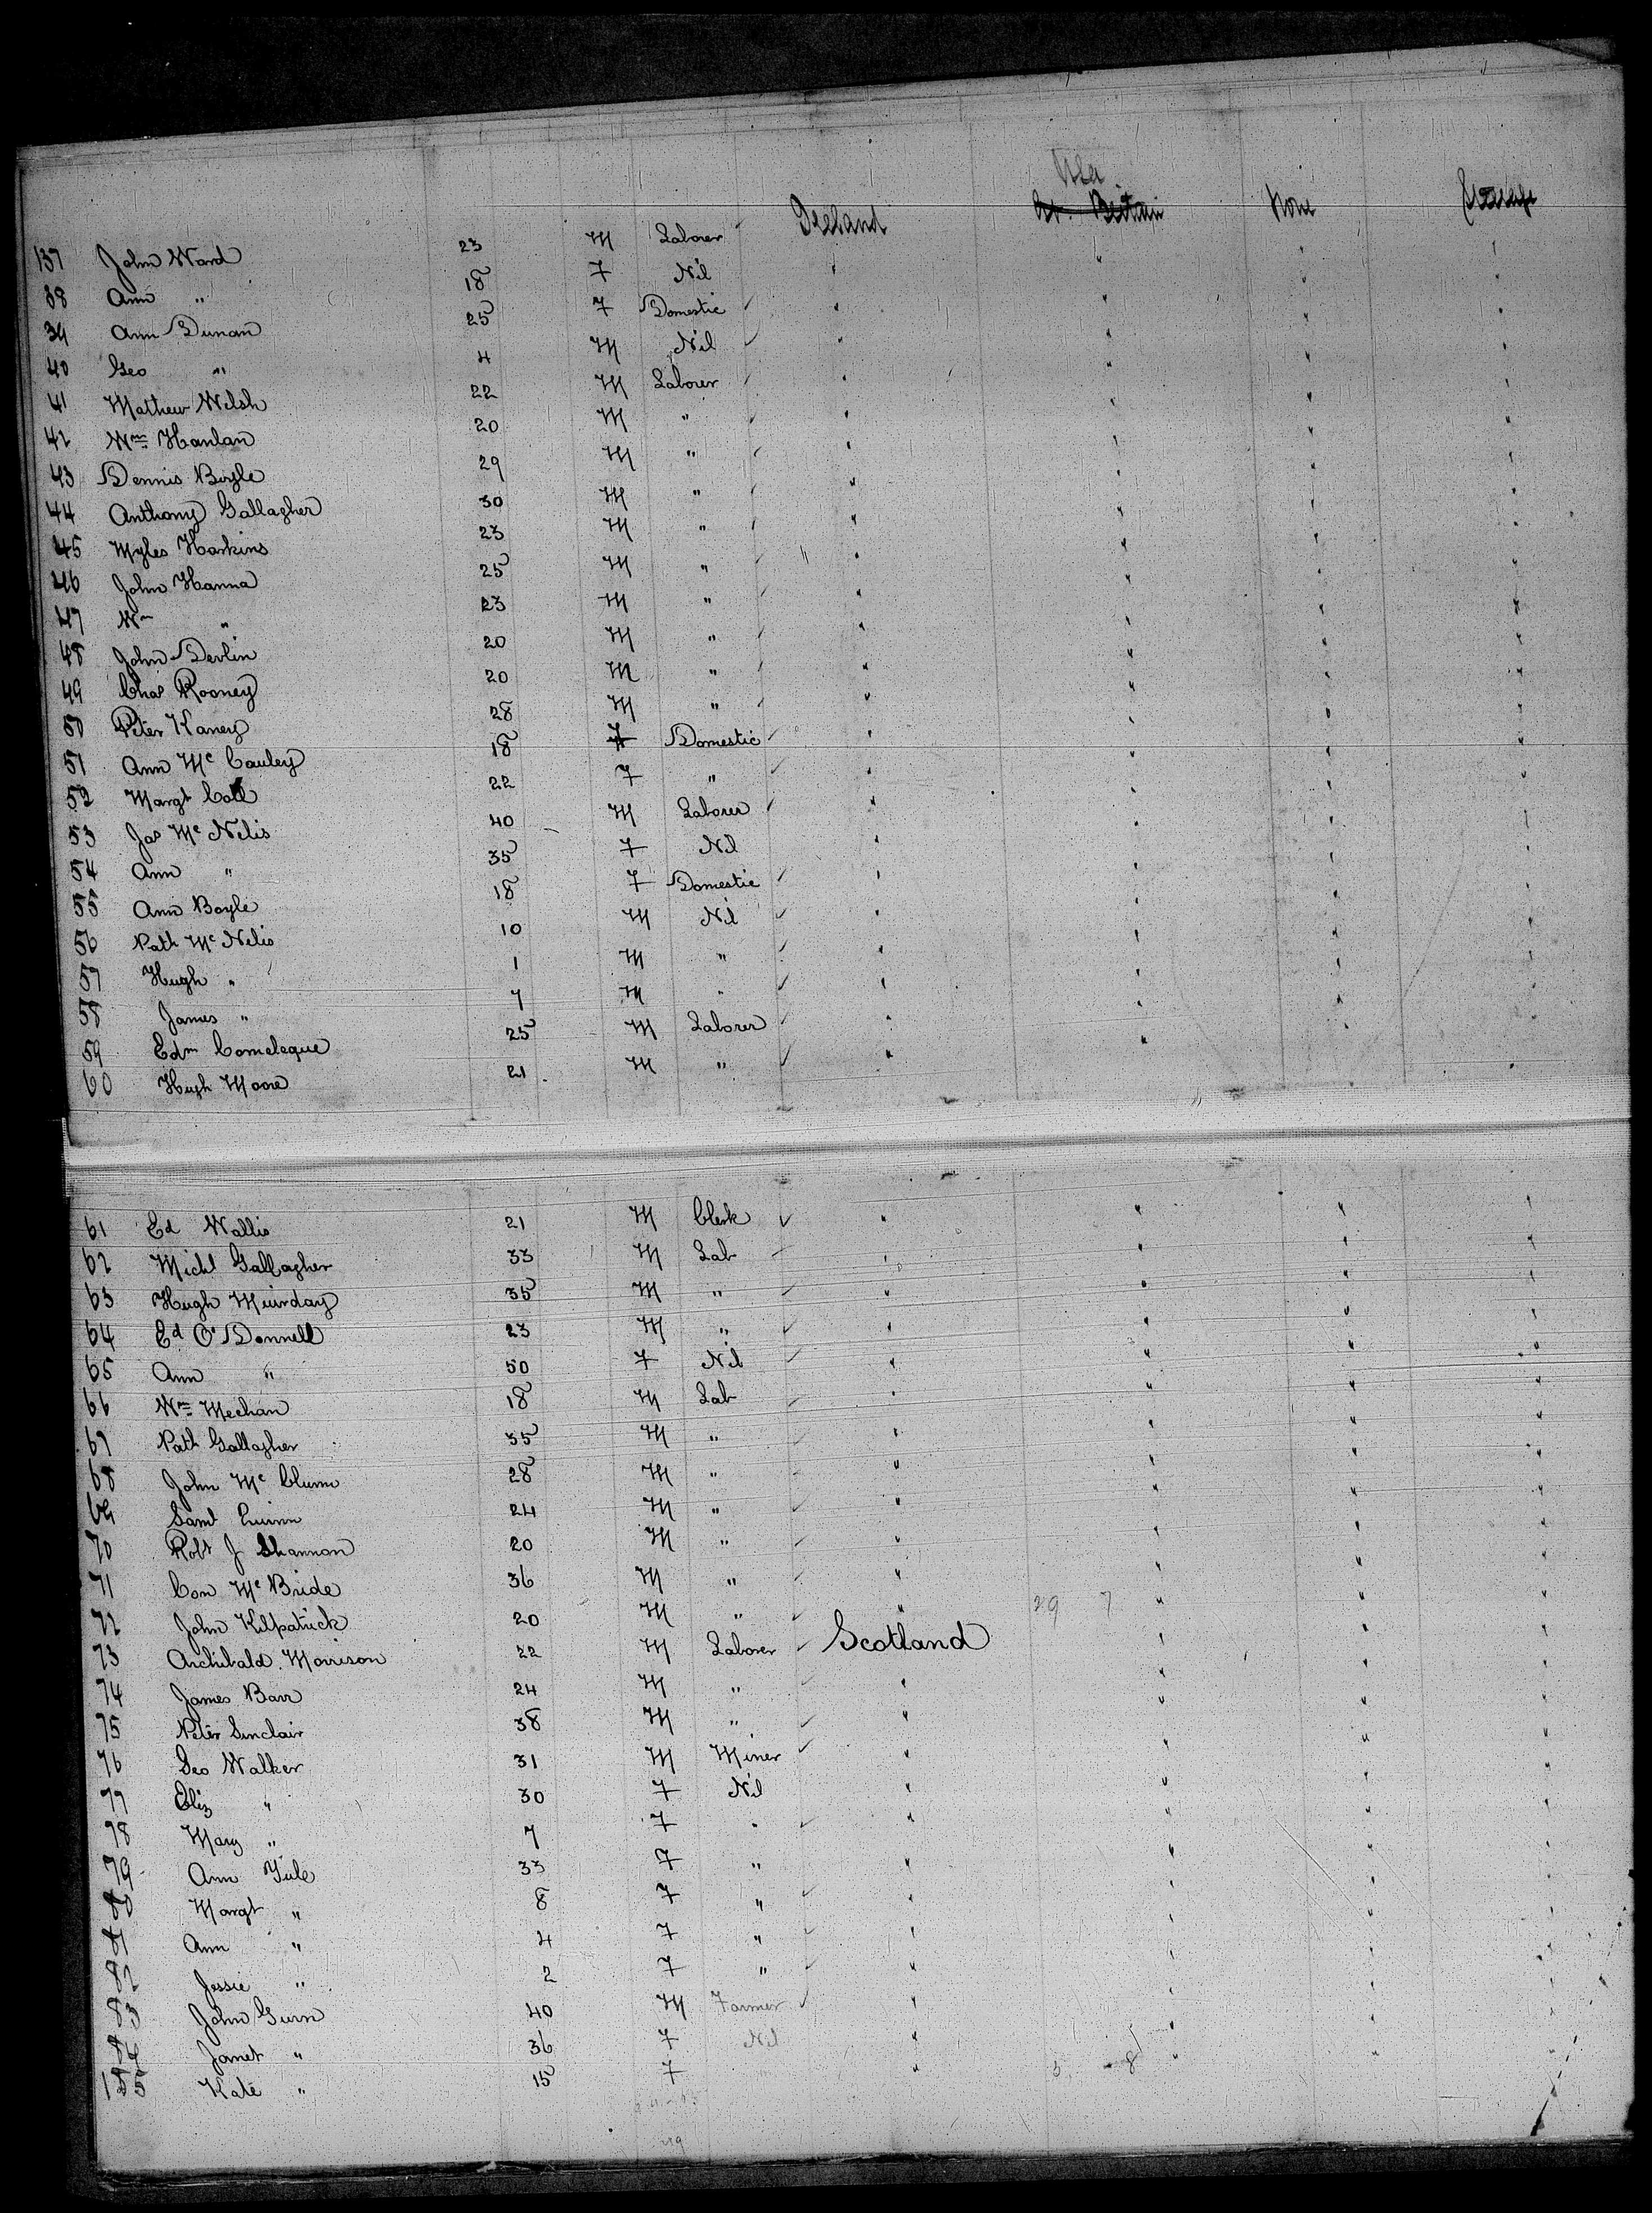 USA
137 John Ward 23 M Laborer Ireland Gt. Britain None Steerage
38 Ann " 18 F Nil " " " "
39 Ann Dunan 25 F Domestic " " " "
40 Geo " 4 M Nil " " " "
41 Mathew Welsh 22 M Laborer " " " "
42 Wm Hanlan 20 M " " " " "
43 Dennis Boyle 29 M " " " " "
44 Anthony Gallagher 30 M " " " " "
45 Myles Harkins 23 M " " " " "
46 John Hanna 25 M " " " " "
47 Wm " 23 M " " " " "
48 John Devlin 20 M " " " " "
49 Chas Rooney 20 M " " " " "
50 Peter Kaney 28 M " " " " "
51 Ann McCauley 18 F Domestic " " " "
52 Margt Coll 22 F " " " " "
53 Jas McNelis 40 M Laborer " " " "
54 Ann " 35 F Nil " " " "
55 Ann Boyle 18 F Domestic " " " "
56 Path McNelis 10 M Nil " " " "
57 Hugh " 1 M " " " " "
58 James " 7 M " " " " "
59 Edm 25 M Laborer " " " "
60 Hugh Moore 21 M " " " " "
61 Ed Wallis 21 M Clerk " " " "
62 Michl Gallagher 33 M Lab " " " "
63 Hugh 35 M " " " " "
64 Ed O'Donnell 23 M " " " " "
65 Ann " 50 F Nil " " " "
66 Wm Meehan 18 M Lab " " " "
67 Path Gallagher 35 M " " " " "
68 John 28 M " " " " "
69 Saml Quinn 24 M " " " " "
70 Robt J Shannon 20 M " " " " "
71 Con McBride 36 M " " " " "
72 John Kilpatrick 20 M " " 29 7 " " "
73 Archibald Morrison 22 M Laborer Scotland " " "
74 James Barr 24 M " " " " "
75 Peter Sinclair 38 M " " " " "
76 Geo Walker 31 M Miner " " " "
77 Eliz " 30 F Nil " " " "
78 Mary " 7 F " " " " "
79 Ann Yule 33 F " " " " "
80 Margt " 8 F " " " " "
81 Ann " 4 F " " " " "
82 Jessie " 2 F " " " " "
83 John Gunn 40 M Farmer " " " "
84 Janet " 36 F Nil " " " "
185 Kate " 15 F " 3 8 " " "